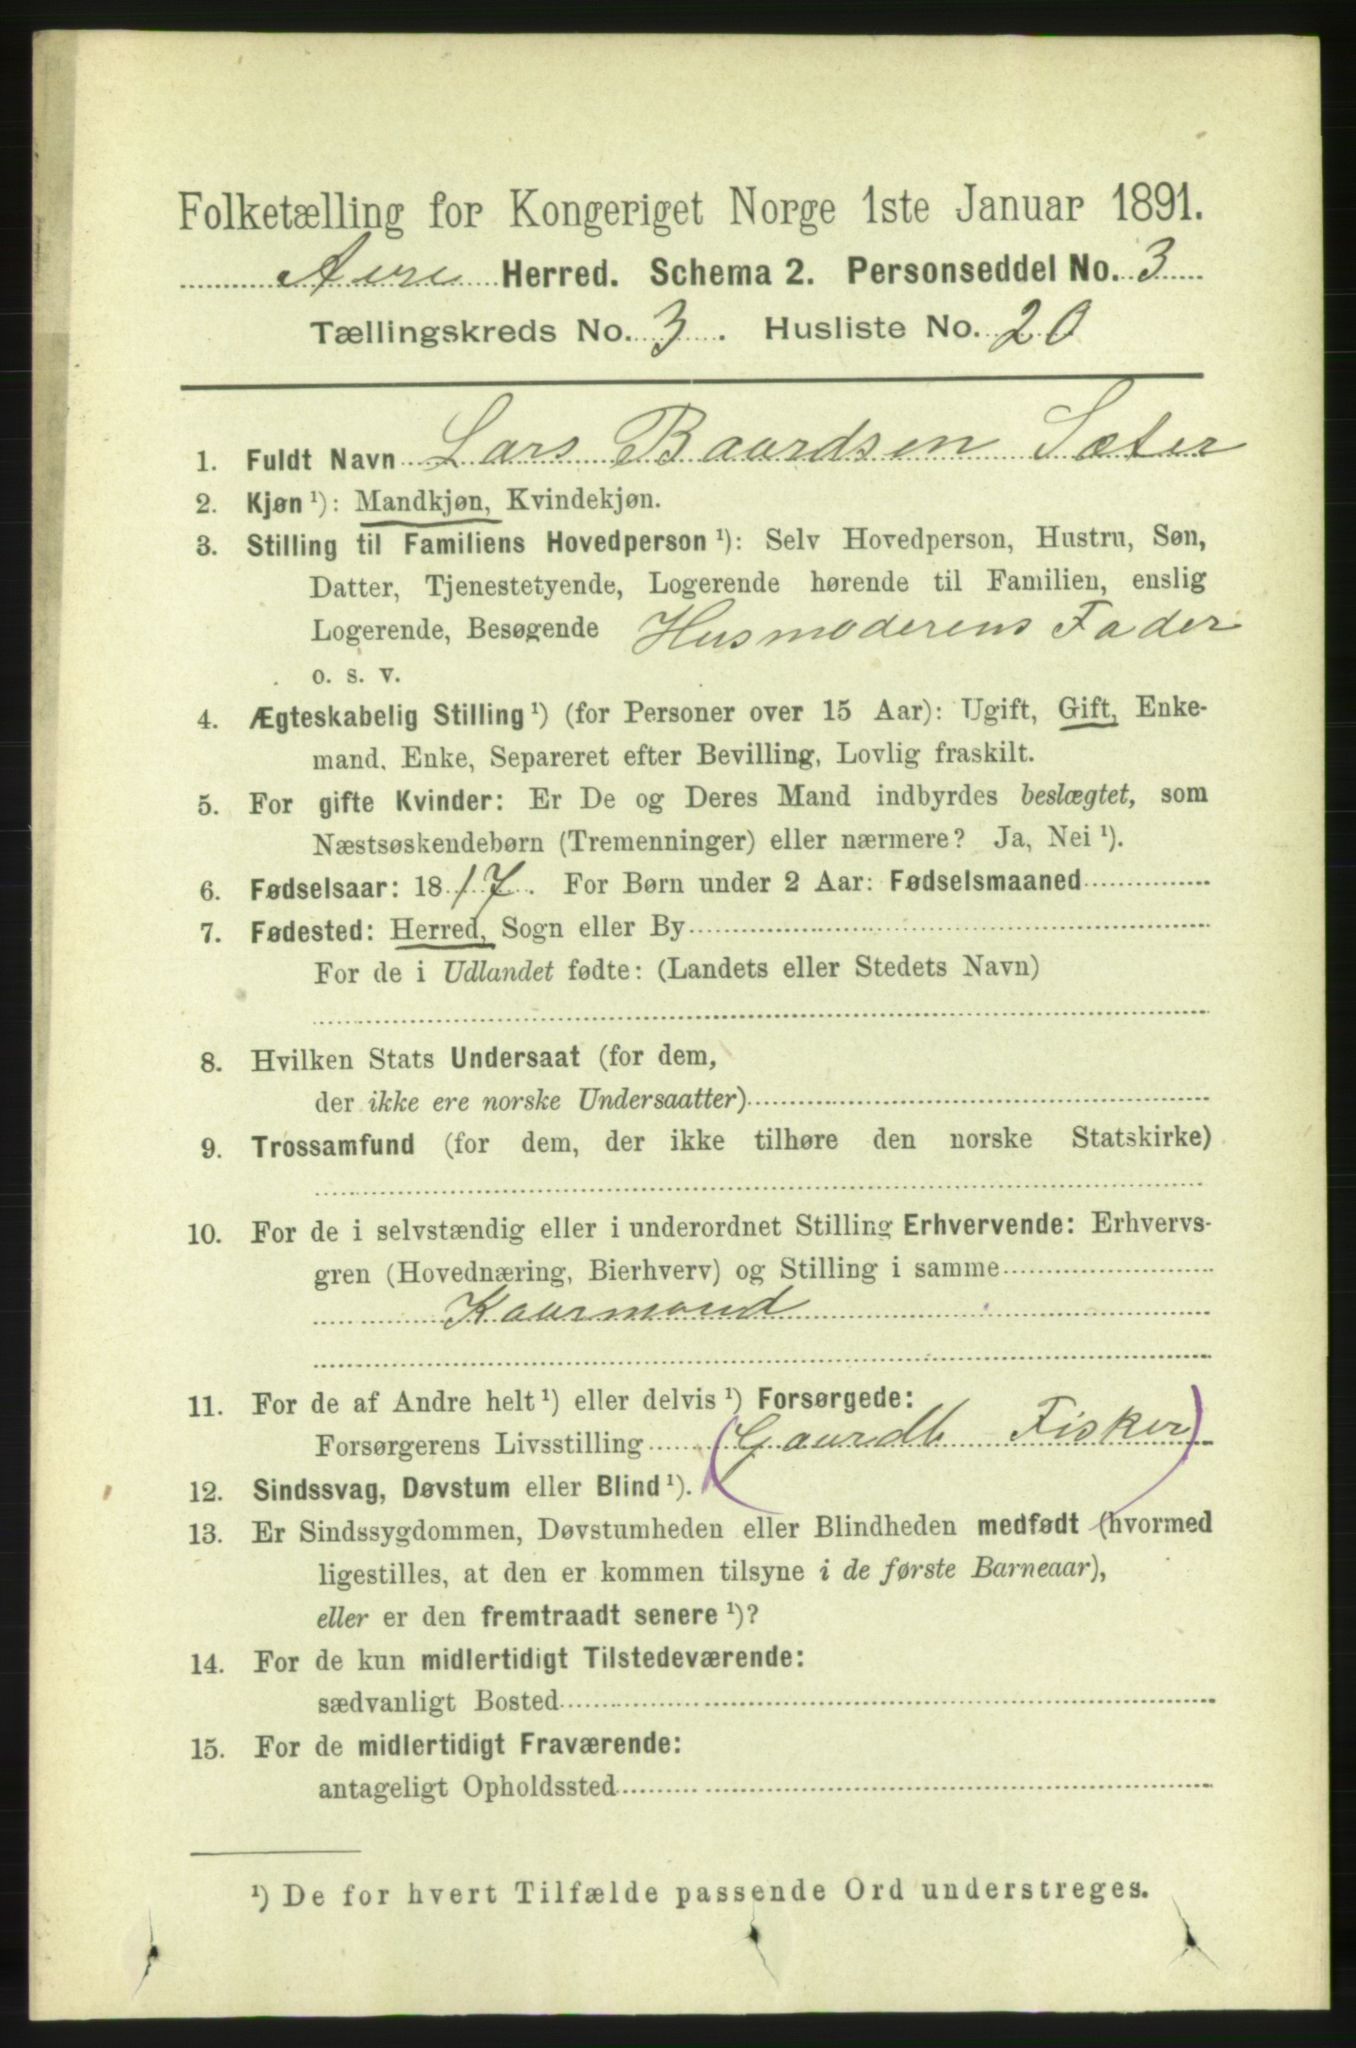 Folketælling for Kongeriget Norge 1ste Januar 1891.
Aure Herred. Schema 2. Personseddel No. 3
Tællingskreds No. 3. Husliste No. 20
1. Fuldt Navn Lars Baardsen Sæter
2. Kjøn ¹): Mandkjøn, Kvindekjøn.
3. Stilling til Familiens Hovedperson ¹): Selv Hovedperson, Hustru, Søn,
Datter, Tjenestetyende, Logerende hørende til Familien, enslig
Logerende, Besøgende Husmoderens Fader
o. s. v.
4. Ægteskabelig Stilling ¹) (for Personer over 15 Aar): Ugift, Gift, Enke-
mand, Enke, Separeret efter Bevilling, Lovlig fraskilt.
5. For gifte Kvinder: Er De og Deres Mand indbyrdes beslægtet, som
Næstsøskendebørn (Tremenninger) eller nærmere? Ja, Nei ¹).
6. Fødselsaar: 1817. For Børn under 2 Aar: Fødselsmaaned
7. Fødested: Herred, Sogn eller By
For de i Udlandet fødte: (Landets eller Stedets Navn)
8. Hvilken Stats Undersaat (for dem,
der ikke ere norske Undersaatter)
9. Trossamfund (for dem, der ikke tilhøre den norske Statskirke)
10. For de i selvstændig eller i underordnet Stilling Erhvervende: Erhvervs-
gren (Hovednæring, Bierhverv) og Stilling i samme
Kaarmand
11. For de af Andre helt ¹) eller delvis ¹) Forsørgede:
Forsørgerens Livsstilling (Gaardb Fisker)
12. Sindssvag, Døvstum eller Blind ¹).
13. Er Sindssygdommen, Døvstumheden eller Blindheden medfødt (hvormed
ligestilles, at den er kommen tilsyne i de første Barneaar),
eller er den fremtraadt senere ¹)?
14. For de kun midlertidigt Tilstedeværende:
sædvanligt Bosted
15. For de midlertidigt Fraværende:
antageligt Opholdssted
¹) De for hvert Tilfælde passende Ord understreges.